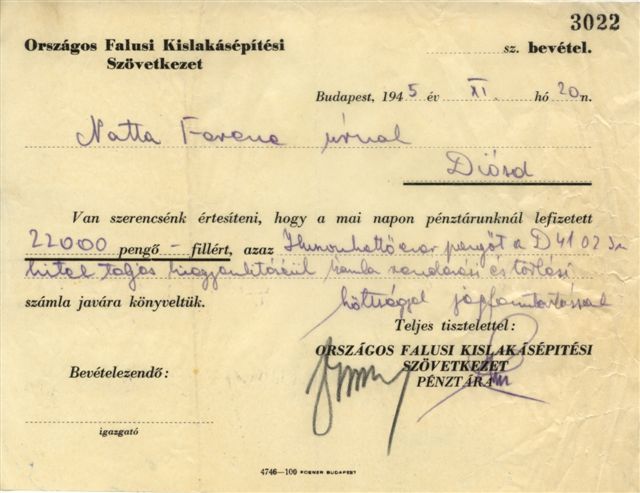 3022
Országos Falusi Kislakásépítési
Szövetkezet
sz. bevétel.
Budapest, 1945 év XI. hó 20 n.
Natta Ferenc úrnak
Diósd
Van szerencsénk értesíteni, hogy a mai napon pénztárunknál lefizetett
22000 pengő - fillért, azaz Huszonkettőezer pengőt a D 4102
hitel teljes kiegyenlítéséül és törlési
számla javára könyveltük. költséggel
Teljes tisztelettel:
ORSZÁGOS FALUSI KISLAKÁSÉPITÉSI
SZÖVETKEZET
PÉNZTÁRA
Bevételezendő:
igazgató
4746—100 POSNER BUDAPEST